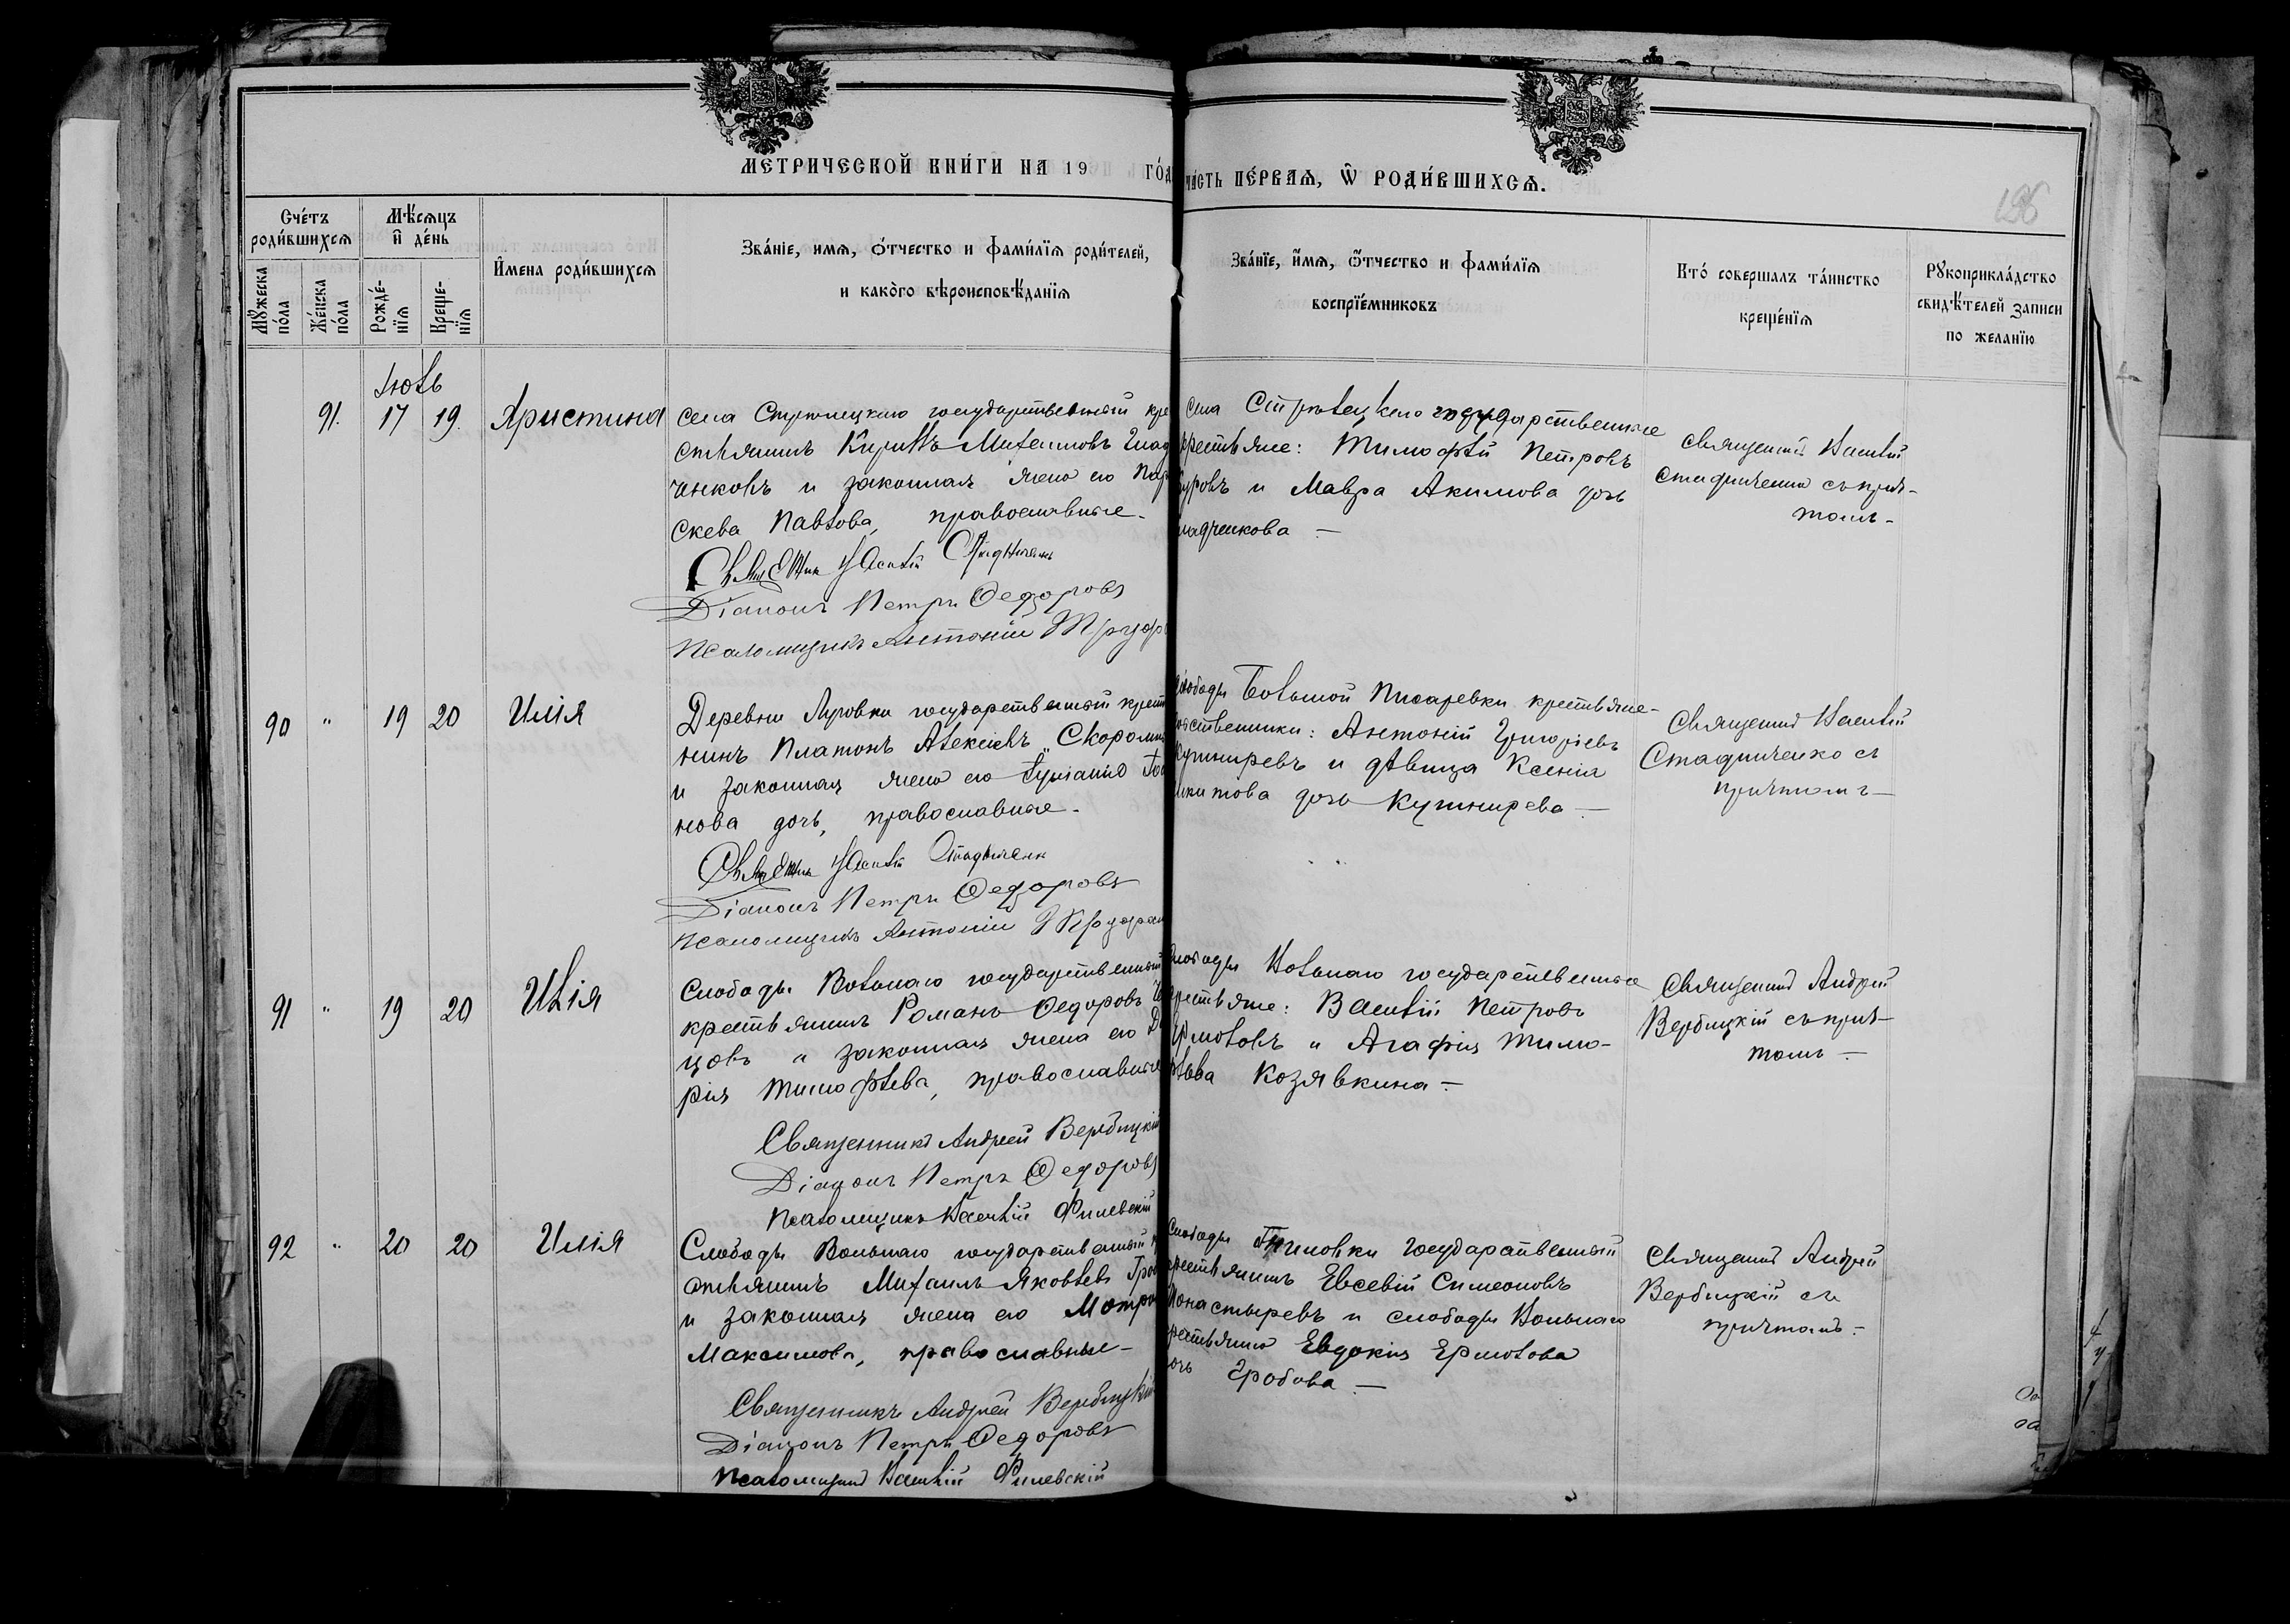 МЕТРИЧЕСКОЙ КНИ́ГИ НА 19 ГО́Д
ЧА́СТЬ ПЕ́РВАЯ, Ѿ РОДИ́ВШИХСЯ.
Сче́тъ родившихся
Мѣ́сяцъ и де́нь
Му́жеска по́ла
Же́нска по́ла
Рожде́нія
Креще́нія
Имена роди́вшихся
Зва́ніе, имя, о́тчество и фами́лія роди́телей,
и како́го вѣроисповѣ́данія
Зва́ніе, имя, о́тчество и фами́лія
воспріе́мниковъ
Кто́ совершалъ та́инство
креще́нія
Рукоприкла́дство
свидѣ́телей записи
по желанію
Іюль
91. 17 19. Христина
села Стрѣлецкаго государственный кре
стьянинъ Кириллъ Михаиловъ Глад
ченковъ и законная жена его Пар
скева Павлова, православные.
Священникъ Василій Стадниченко
Діаконъ Петръ Ѳедоровъ
Псаломщикъ Антоній
села Стрѣлецкаго государственные
крестьяне: Тимофѣй Петровъ
и Мавра Акимова дочь
ладченкова —
Священникъ Василій
Стадниченко съ прич-
томъ.
90 " 19 20 Илія
Деревни Луговки государственный крест
нинъ Платонъ Алексѣевъ
и законная жена его
нова дочь, православные.
Священникъ Василій Стадниченко
Діаконъ Петръ Ѳедоровъ
Псаломщикъ Антоній
слободы Большой Писаревки крестьяне-
собственники: Антоній Григоріевъ
Кушниревъ и дѣвица Ксенія
Никитова дочь Кушнирева —
Священникъ Василій
Стадниченко съ
причтомъ —
91 " 19 20 Илія
Слободы Вольнаго государственный
крестьянинъ Романъ Ѳедоровъ
цовъ и законная жена его Да
рія Тимофѣева, православные
Священникъ Андрей Вербицкій
Діаконъ Петръ Ѳедоровъ
Псаломщикъ Василій Филевскій
Слободы Вольнаго государственные
крестьяне: Василій Петровъ
Ермоловъ и Агафія Тимо-
фѣева Козявкина —
Священникъ Андрей
Вербицкій съ прич-
томъ —
92 " 20 20 Илія
Слободы Вольнаго государственный к
стьянинъ Михаилъ Яковлевъ
и законная жена его Матро
Максимова, православные —
Священникъ Андрей Вербицкій
Діаконъ Петръ Ѳедоровъ
Псаломщикъ Василій Филевскій
Слободы государственный
крестьянинъ Евсевій Симеоновъ
Монастыревъ и слободы Вольнаго
крестьянка Евдокія Ермолова
дочь Гробова —
Священникъ Андрей
Вербицкій съ
причтомъ —